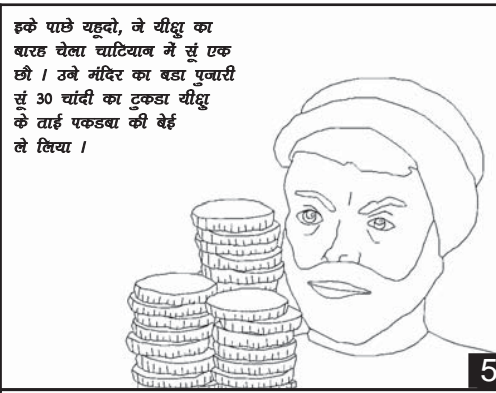 इके पाछे यहूदो, जे यीक्षु का
बारह चेला चाटियान में सूं एक
छौ । उने मंदिर का बडा पुजारी
सूं 30 चांदी का टुकडा यीक्षु
के ताई पकडबा की बेई
ले लिया ।
5